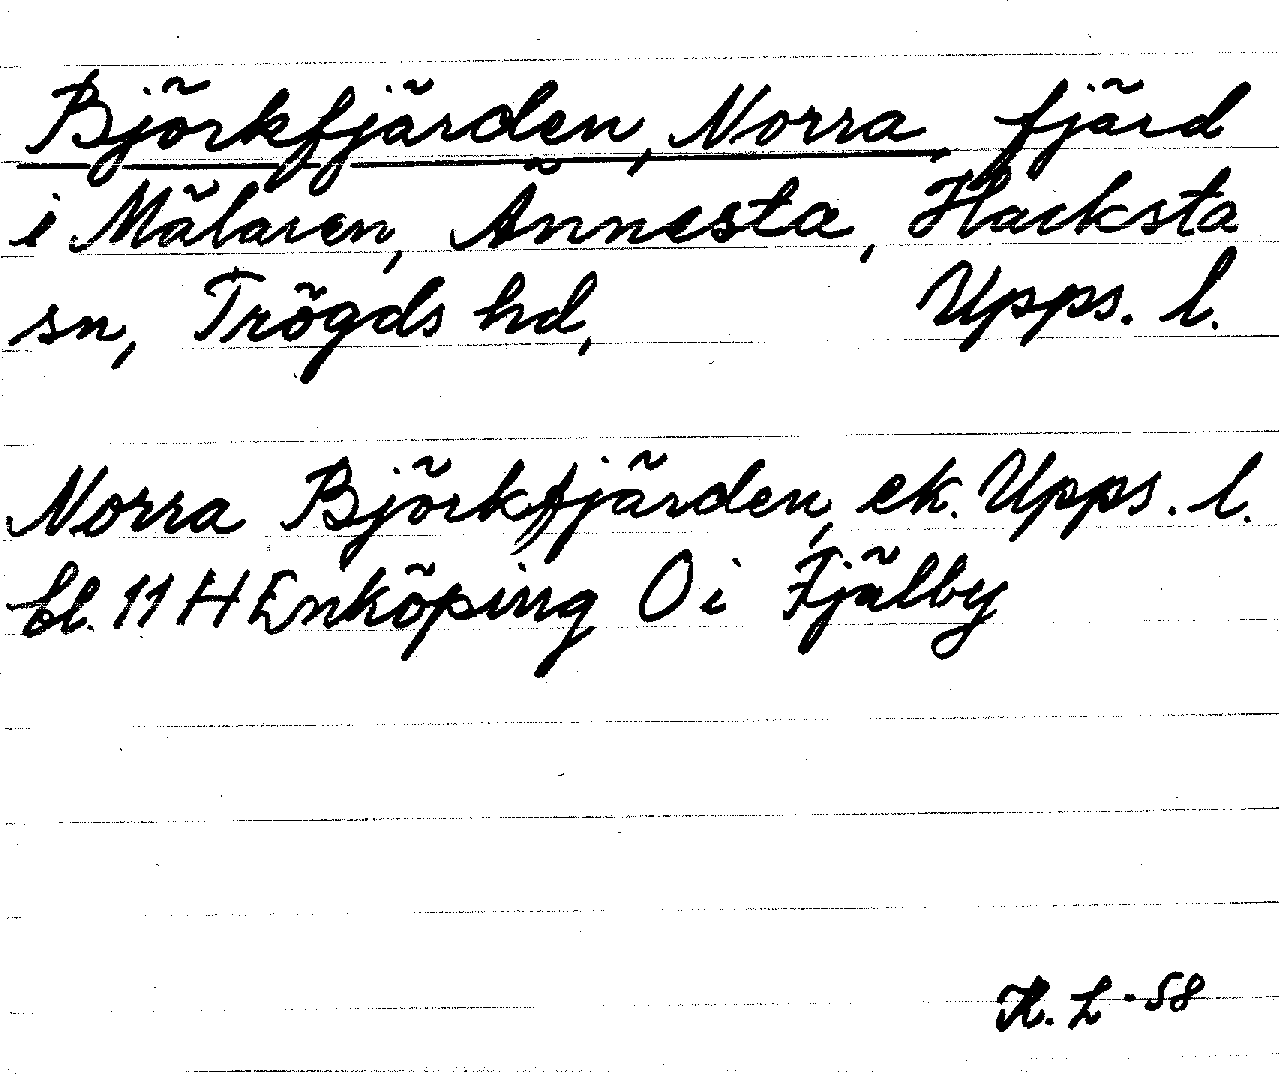 Björkfjärden, Norra, fjärd
i Mälaren, Ännesta, Hacksta
sn, Trögds hd, Upps. l.
Norra Björkfjärden, ek. Upps. l.
bl. 11 H Enköping O i Fjälby
H. L -58